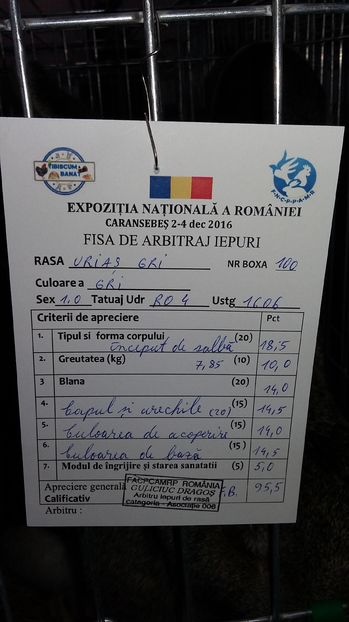 TIBISCUM
BANAT
F-N-C-P-P-A-M-R
EXPOZIȚIA NAȚIONALĂ A ROMÂNIEI
CARANSEBEȘ 2-4 dec 2016
FISA DE ARBITRAJ IEPURI
RASA URIAS GRI NR BOXA 100
Culoarea GRI
Sex 1.0 Tatuaj Udr RO 4 Ustg 1606
Criterii de apreciere Pct
1. Tipul si forma corpului (20)
început de salbă 18,5
2. Greutatea (kg) 7,85 (10) 10,0
3 Blana (20) 14,0
4. Capul și urechile (20) (15) 14,5
5. Culoarea de acoperire (15) 14,0
6. Culoarea de bază (15) 14,5
7. Modul de îngrijire și starea sanatatii (5) 5,0
Apreciere generală F.B. 95,5
Calificativ
FACPCAMRP ROMÂNIA
GULICIUC DRAGOS
Arbitru iepuri de rasă
categoria - Asociație 006
Arbitru :